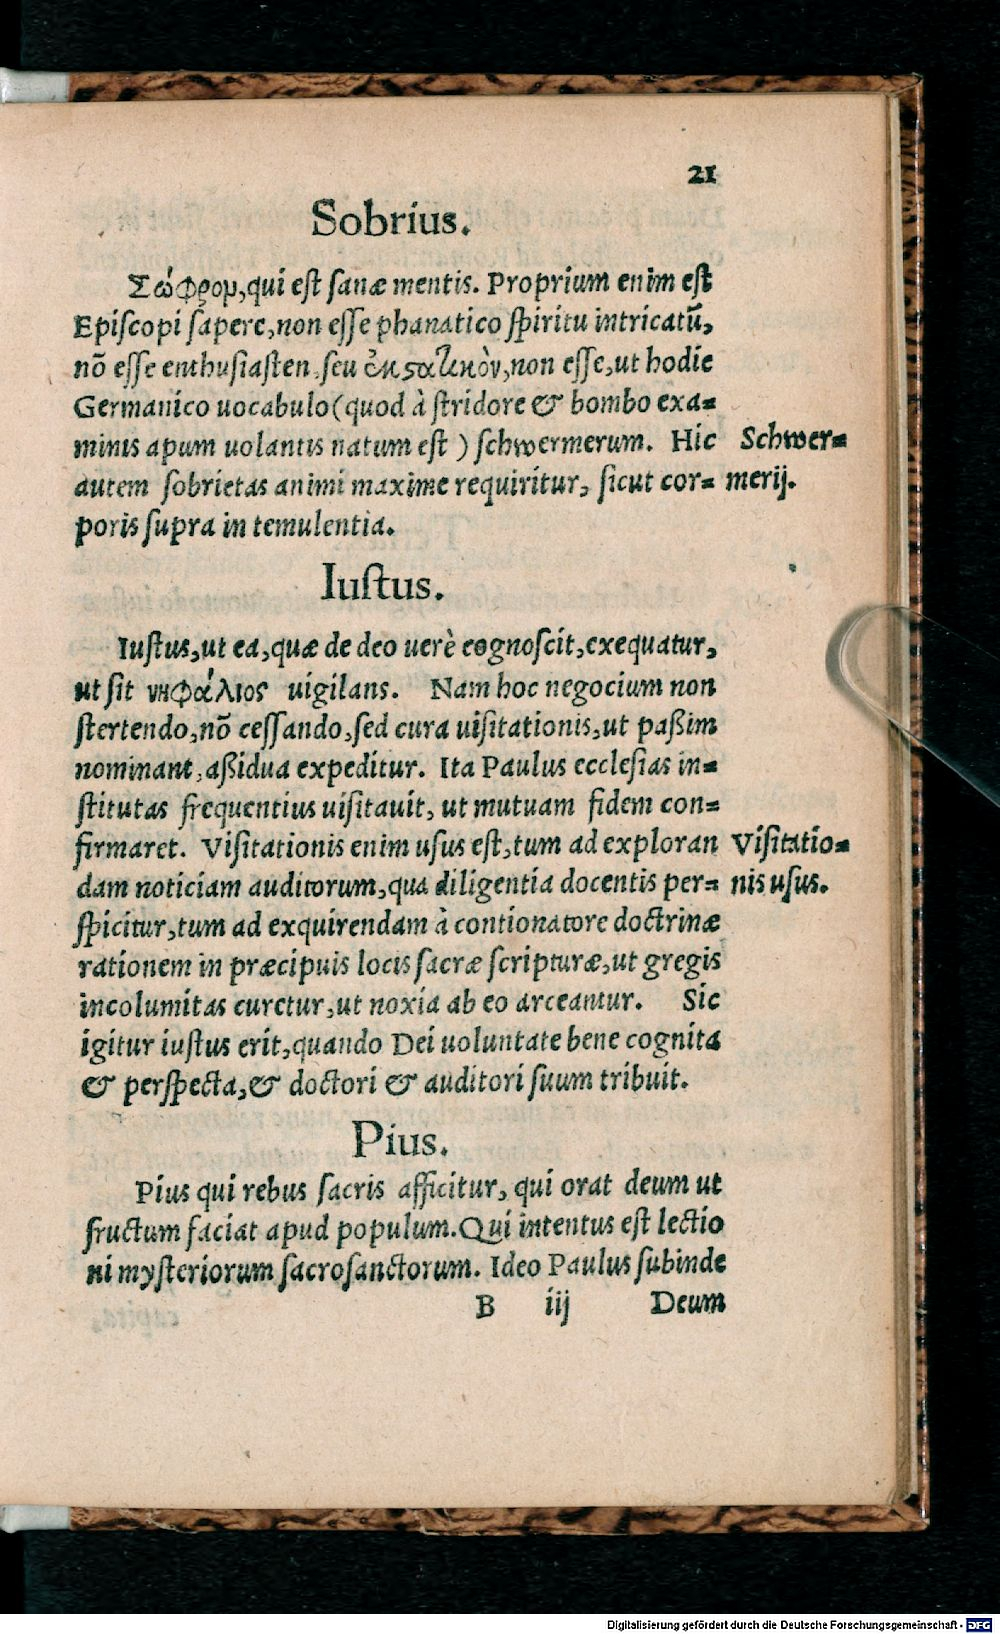 21
Sobrius.
Σώφρομ,qui est sanæ mentis. Proprium enim est
Episcopi sapere,non esse phanatico spiritu intricatũ,
nõ esse enthusiasten,seu ἐκςατικὸν,non esse,ut hodie
Germanico uocabulo(quod à stridore & bombo exa=
minis apum uolantis natum est ) schwermerum. Hic
Schwer=
autem sobrietas animi maxime requiritur, sicut cor=
merij.
poris supra in temulentia.
Iustus.
Iustus,ut ea,quæ de deo uerè cognoscit,exequatur,
ut sit νηφάλιος uigilans. Nam hoc negocium non
stertendo,nõ cessando,sed cura uisitationis,ut paßim
nominant,aßidua expeditur. Ita Paulus ecclesias in=
stitutas frequentius uisitauit, ut mutuam fidem con=
firmaret. Visitationis enim usus est,tum ad exploran
Visitatio=
dam noticiam auditorum,qua diligentia docentis per=
nis usus.
spicitur,tum ad exquirendam à contionatore doctrinæ
rationem in præcipuis locis sacræ scripturæ,ut gregis
incolumitas curetur,ut noxia ab eo arceantur. Sic
igitur iustus erit,quando Dei uoluntate bene cognita
& perspecta,& doctori & auditori suum tribuit.
Pius.
Pius qui rebus sacris afficitur, qui orat deum ut
fructum faciat apud populum.Qui intentus est lectio
ni mysteriorum sacrosanctorum. Ideo Paulus subinde
B iij Deum
Digitalisierung gefördert durch die Deutsche Forschungsgemeinschaft - DFG